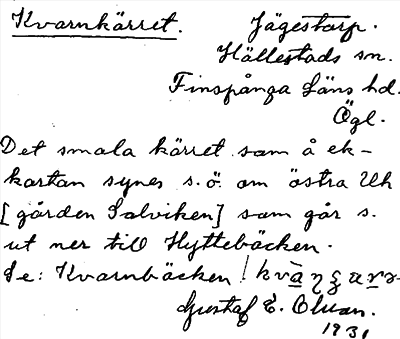 Kvarnkärret. Jägestorp.
Hällestads sn.
Finspånga Läns hd.
Ögl.
Det smala kärret som å ek-
kartan synes s.ö. om östra Uh
[gården Salviken] som går s.
ut ner till Hyttebäcken.
Se: Kvarnbäcken!
Gustaf E. Olsson.
1931